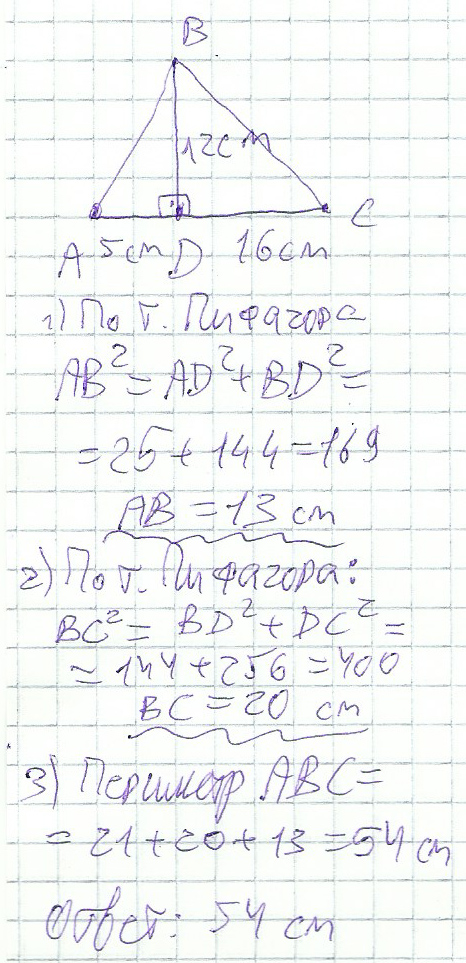 B
12см
C
A 5см D 16см
1) По т. Пифагора
AB² = AD² + BD² =
= 25 + 144 = 169
AB = 13 см
2) По т. Пифагора:
BC² = BD² + DC² =
= 144 + 256 = 400
BC = 20 см
3) Периметр ABC =
= 21 + 20 + 13 = 54 см
Ответ: 54 см